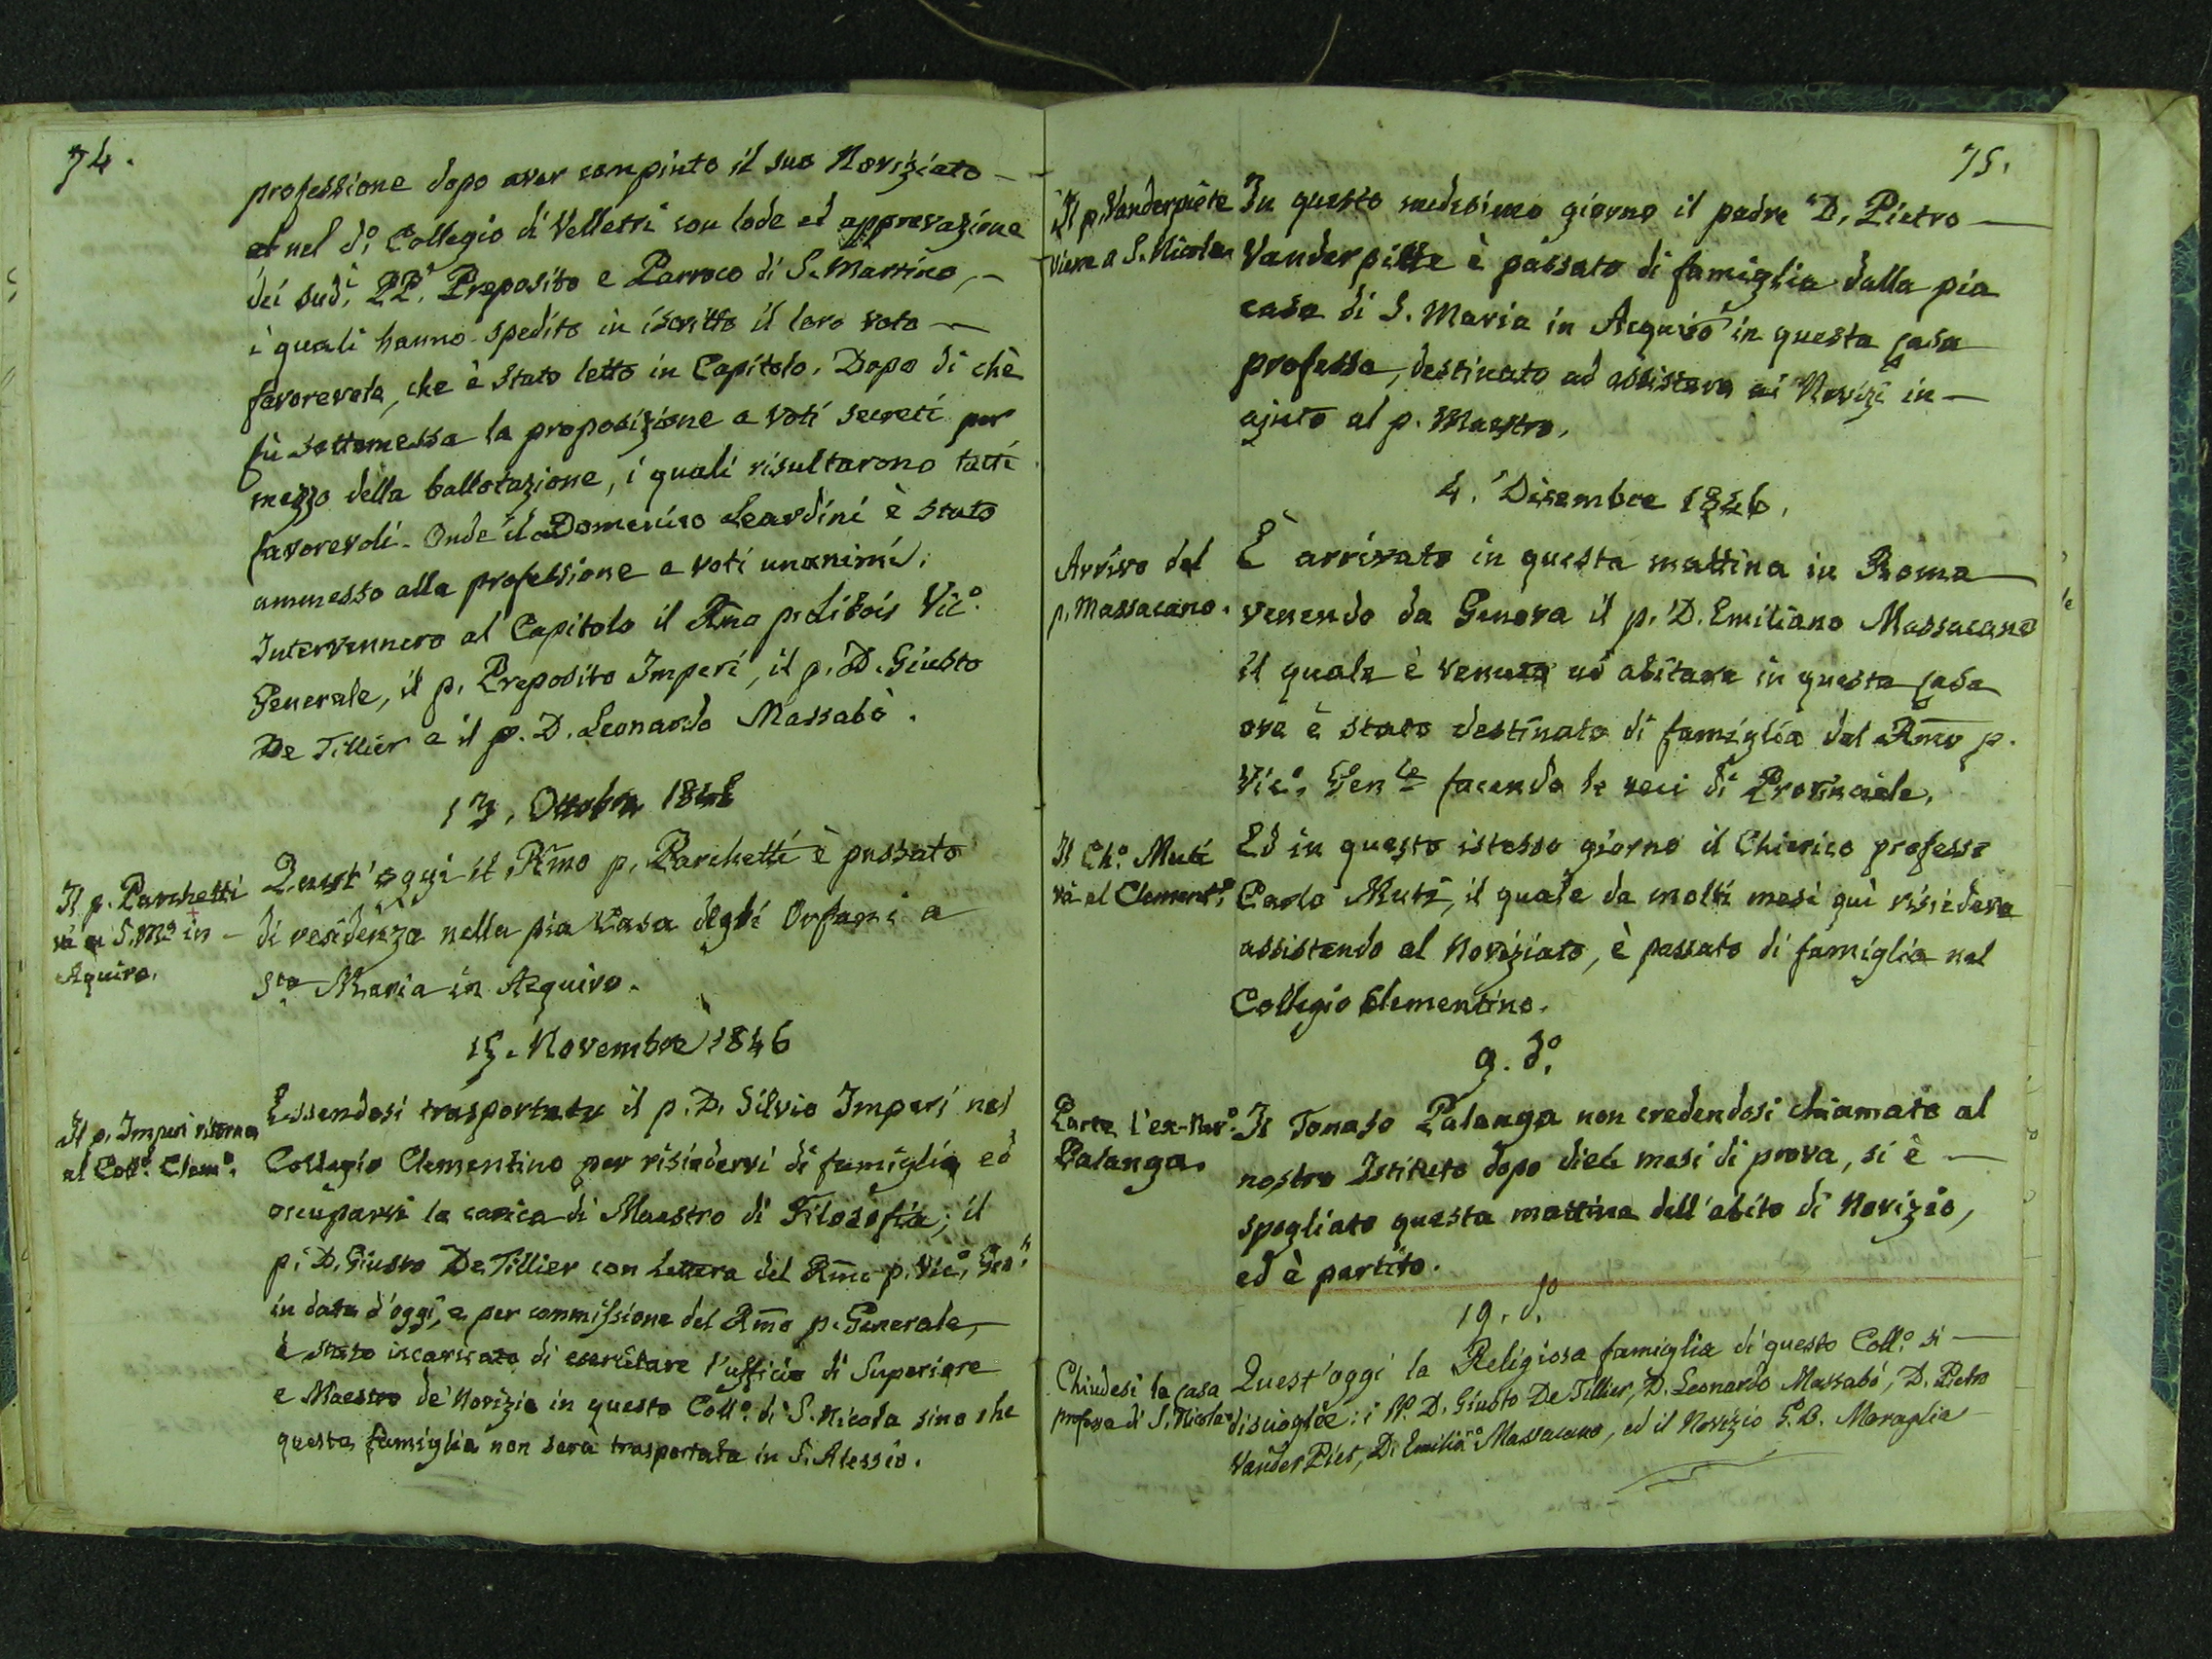 74.
professione dopo aver compiuto il suo Noviziato —
nel dº. Collegio di Velletri con lode ed approvazione
dei sudⁱ. PP. Preposito e Parroco di S. Martino, —
i quali hanno spedito in iscritto il loro voto —
favorevole, che è stato letto in Capitolo. Dopo di chè
fù sottomessa la proposizione a voti secreti per
mezzo della ballotazione, i quali risultarono tutti
favorevoli. Onde il Domenico Leardini è stato
ammesso alla professione a voti unanimi.
Intervennero al Capitolo il Rmo p. Libois Vicº.
Generale, il p. Preposito Imperi, il p. D. Giusto
De Tillier e il p. D. Leonardo Massabò.
13. Ottobre 1846
Il p. Parchetti
và a S. Mª in —
Aquiro.
Quest'oggi il Rmo p. Parchetti è passato
di residenza nella pia Casa degli Orfani a
Sta Maria in Aequiro.
15. Novembre 1846
Il p. Imperi ritorna
al Collº. Clemº.
Essendosi trasportato il p. D. Silvio Imperi nel
Collegio Clementino per risiedervi di famiglia ed
occuparvi la carica di Maestro di Filosofia; il
p. D. Giusto De Tillier con lettera del Rmo p. Vicº. Gen.
in data d'oggi, e per commissione del Rmo p. Generale, —
è stato incaricato di esercitare l'ufficio di Superiore
e Maestro de' Novizi in questo Collº. di S. Nicola sino che
questa famiglia non sarà trasportata in S. Alessio.
75.
Il p. Vanderpiete
viene a S. Nicola
In questo medesimo giorno il padre D. Pietro —
Vanderpitte è passato di famiglia dalla pia
casa di S. Maria in Acquiro in questa casa
professa, destinato ad assistere ai Novizi in —
ajuto al p. Maestro.
4. Dicembre 1846.
Arrivo del
p. Massacano.
È arrivato in questa mattina in Roma —
venendo da Genova il p. D. Emiliano Massacano
il quale è venuto ad abitare in questa casa
ove è stato destinato di famiglia dal Rmo p.
Vicº. Genle facendo le veci di Provinciale.
Il Chº. Muti
và al Clementº.
Ed in questo istesso giorno il Chierico professo
Carlo Muti, il quale da molti mesi quì risiedeva
assistendo al Noviziato, è passato di famiglia nel
Collegio Clementino.
9. dº.
Parte l'ex-Novº.
Palanga.
Il Tomaso Palanga non credendosi chiamato al
nostro Istituto dopo dieci mesi di prova, si è —
spogliato questa mattina dell'abito di Novizio,
ed è partito.
19. dº
Chiudesi la casa
professa di S. Nicola
Quest'oggi la Religiosa famiglia di questo Collº. si —
discioglie: i PP. D. Giusto De Tillier, D. Leonardo Massabò, D. Pietro
Vander Piet, D. Emiliano Massacano, ed il Novizio G. B. Moraglia